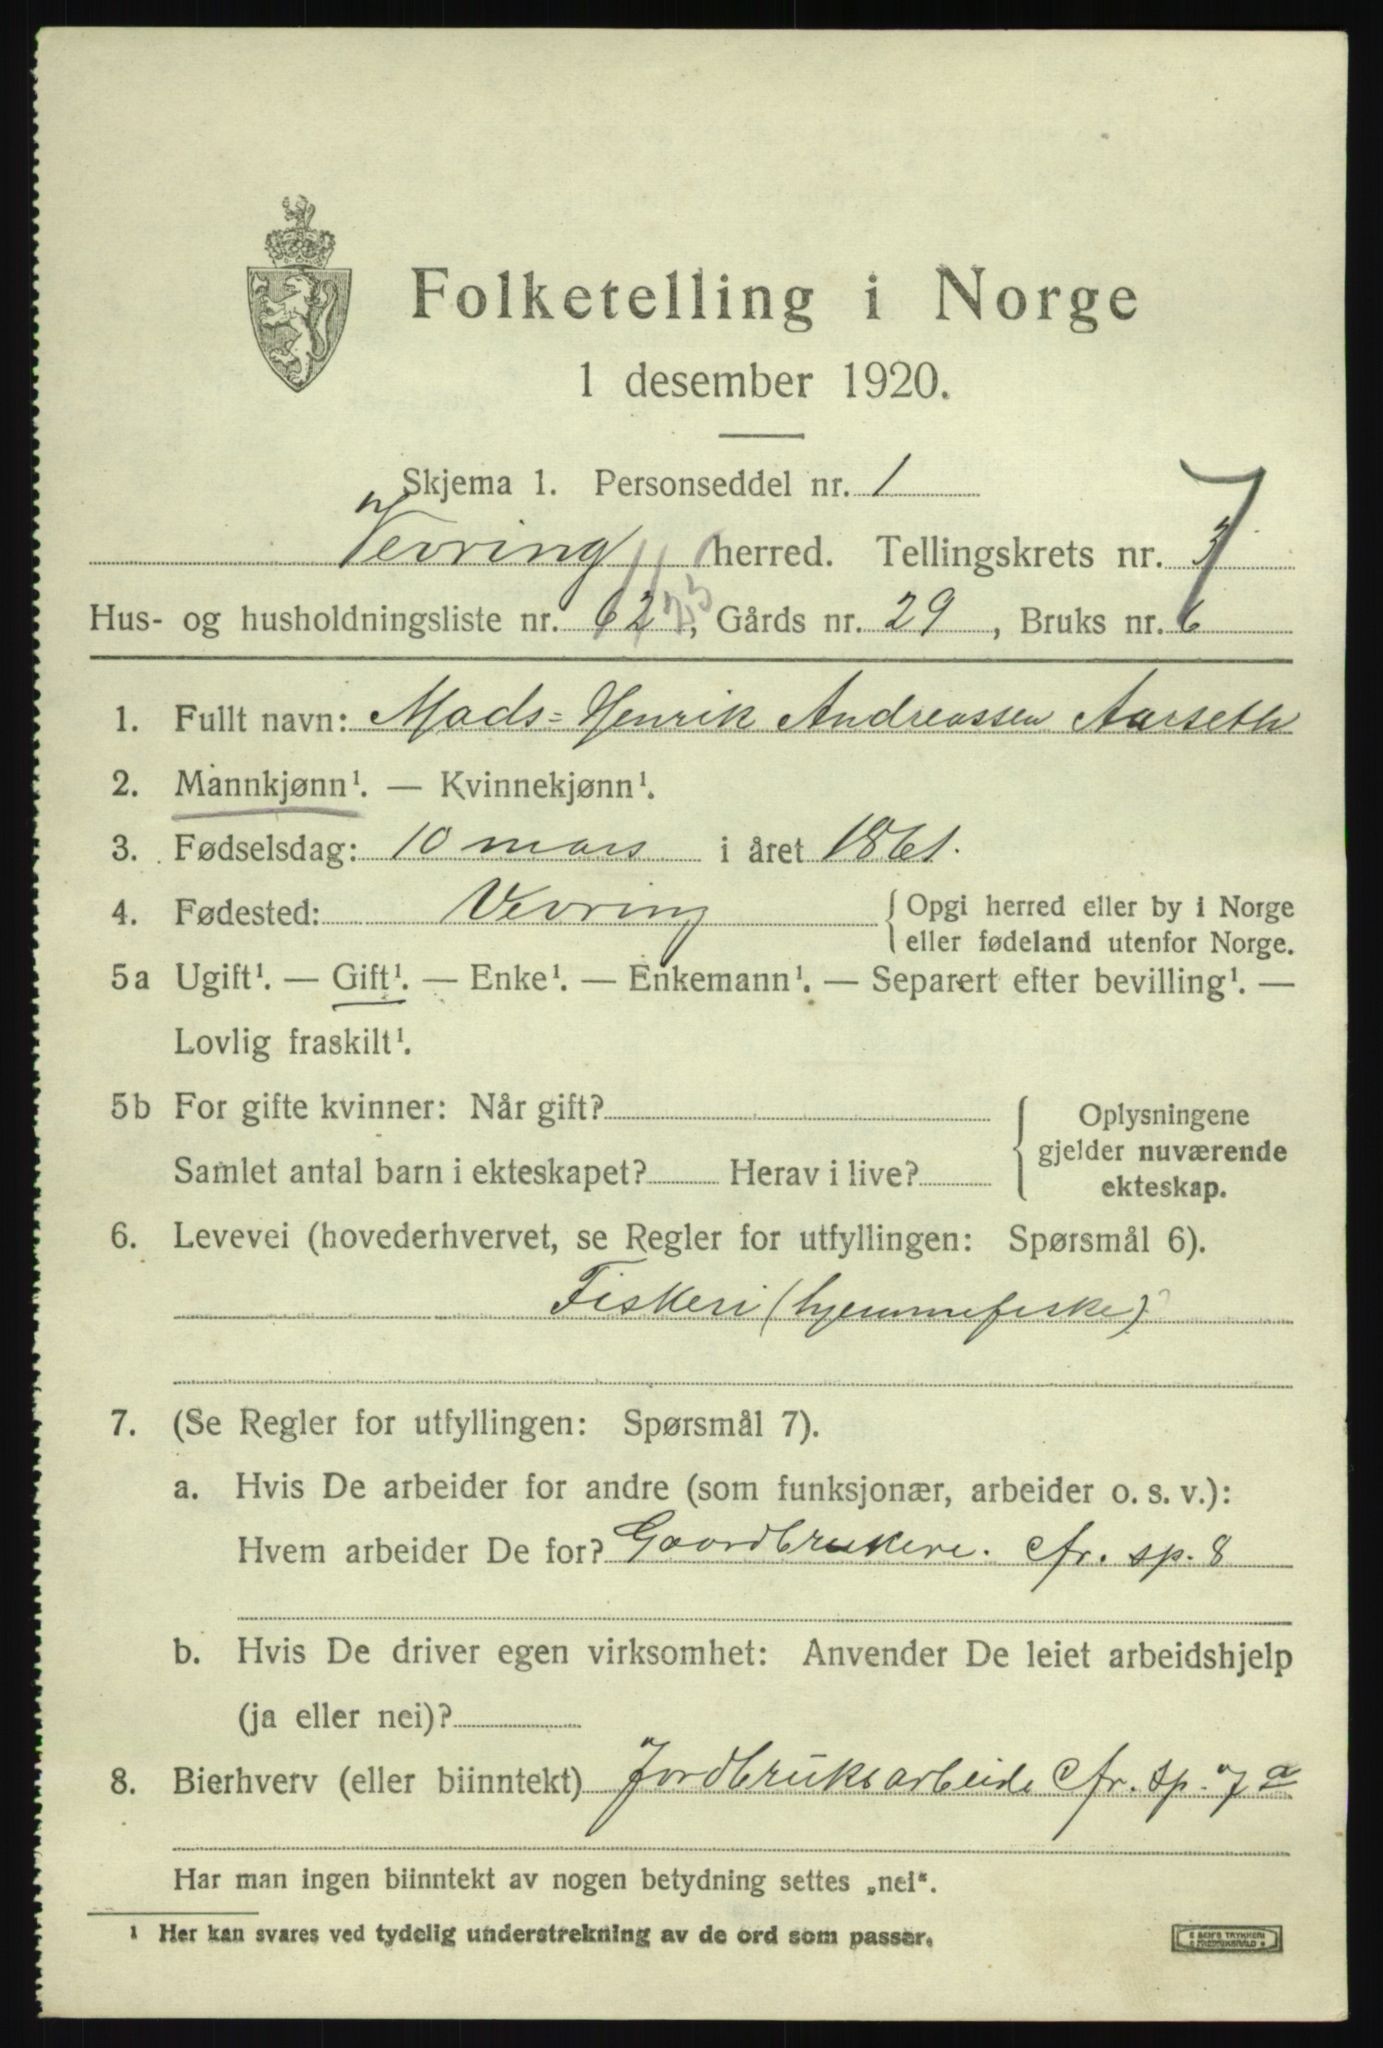 Folketelling i Norge
1 desember 1920.
Skjema 1. Personseddel nr. 1
Vevring herred. Tellingskrets nr. 3 7
Hus- og husholdningsliste nr. 62, Gårds nr. 29, Bruks nr. 6
1. Fullt navn: Mads=Henrik Andreassen Aarseth
2. Mannkjønn¹. — Kvinnekjønn¹.
3. Fødselsdag: 10 mars i året 1861.
4. Fødested: Vevring { Opgi herred eller by i Norge
eller fødeland utenfor Norge.
5a Ugift¹. — Gift¹. — Enke¹. — Enkemann¹. — Separert efter bevilling¹. —
Lovlig fraskilt¹.
5b For gifte kvinner: Når gift? { Oplysningene
gjelder nuværende
Samlet antal barn i ekteskapet? Herav i live? ekteskap.
6. Levevei (hovederhvervet, se Regler for utfyllingen: Spørsmål 6).
Fiskeri (hjemmefiske)
7. (Se Regler for utfyllingen: Spørsmål 7).
a. Hvis De arbeider for andre (som funksjonær, arbeider o. s. v.):
Hvem arbeider De for? Gaardbrukere. cfr. sp. 8
b. Hvis De driver egen virksomhet: Anvender De leiet arbeidshjelp
(ja eller nei)?
8. Bierhverv (eller biinntekt) Jordbruksarbeide cfr. sp. 7 a
Har man ingen biinntekt av nogen betydning settes „nei“.
¹ Her kan svares ved tydelig understrekning av de ord som passer.
E SEM'S TRYKKERI
FREDRIKSHALD